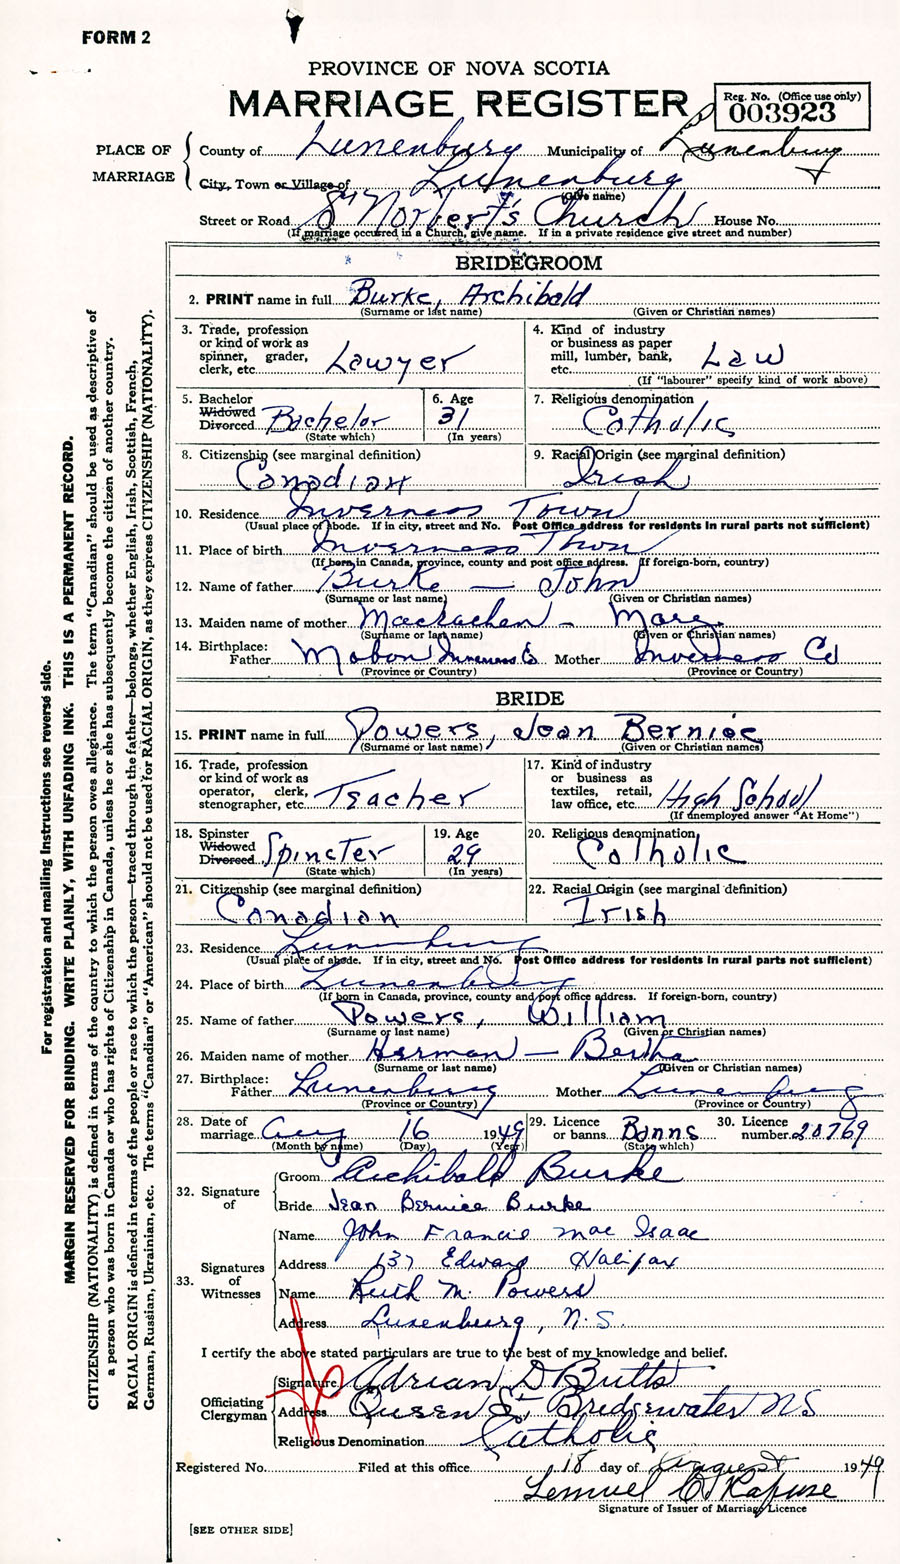 FORM 2
PROVINCE OF NOVA SCOTIA
MARRIAGE REGISTER
Reg. No. (Office use only)
003923
PLACE OF MARRIAGE
County of Lunenburg Municipality of Lunenburg
City, Town or Village of Lunenburg
(Give name)
Street or Road St Norbert's Church House No.
(If marriage occurred in a Church, give name. If in a private residence give street and number)
BRIDEGROOM
2. PRINT name in full Burke, Archibald
(Surname or last name) (Given or Christian names)
3. Trade, profession or kind of work as spinner, grader, clerk, etc. Lawyer
4. Kind of industry or business as paper mill, lumber, bank, etc. Law
(If "labourer" specify kind of work above)
5. Bachelor Widowed Divorced Bachelor
(State which)
6. Age 31
(In years)
7. Religious denomination Catholic
8. Citizenship (see marginal definition) Canadian
9. Racial Origin (see marginal definition) Irish
10. Residence Inverness Town
(Usual place of abode. If in city, street and No. Post Office address for residents in rural parts not sufficient)
11. Place of birth Inverness Town
(If born in Canada, province, county and post office address. If foreign-born, country)
12. Name of father Burke — John
(Surname or last name) (Given or Christian names)
13. Maiden name of mother MacEachen - Mary
(Surname or last name) (Given or Christian names)
14. Birthplace: Father Mabou Inverness Co Mother Inverness Co
(Province or Country) (Province or Country)
BRIDE
15. PRINT name in full Powers, Jean Bernice
(Surname or last name) (Given or Christian names)
16. Trade, profession or kind of work as operator, clerk, stenographer, etc. Teacher
17. Kind of industry or business as textiles, retail, law office, etc. High School
(If unemployed answer "At Home")
18. Spinster Widowed Divorced Spincter
(State which)
19. Age 29
(In years)
20. Religious denomination Catholic
21. Citizenship (see marginal definition) Canadian
22. Racial Origin (see marginal definition) Irish
23. Residence Lunenburg
(Usual place of abode. If in city, street and No. Post Office address for residents in rural parts not sufficient)
24. Place of birth Lunenburg
(If born in Canada, province, county and post office address. If foreign-born, country)
25. Name of father Powers, William
(Surname or last name) (Given or Christian names)
26. Maiden name of mother Herman — Bertha
(Surname or last name) (Given or Christian names)
27. Birthplace: Father Lunenburg Mother Lunenburg
(Province or Country) (Province or Country)
28. Date of marriage Aug 16 1949
(Month by name) (Day) (Year)
29. Licence or banns Banns
(State which)
30. Licence number 20769
32. Signature of
Groom Archibald Burke
Bride Jean Bernice Burke
33. Signatures of Witnesses
Name John Francis Mac Isaac
Address 137 Edward Halifax
Name Ruth M. Powers
Address Lunenburg, N.S.
I certify the above stated particulars are true to the best of my knowledge and belief.
Officiating Clergyman
Signature Adrian D Butts
Address Queen St, Bridgewater NS
Religious Denomination Catholic
Registered No. Filed at this office 18 day of August 1949
Signature of Issuer of Marriage Licence
[SEE OTHER SIDE]
For registration and mailing instructions see reverse side.
MARGIN RESERVED FOR BINDING. WRITE PLAINLY, WITH UNFADING INK. THIS IS A PERMANENT RECORD.
CITIZENSHIP (NATIONALITY) is defined in terms of the country to which the person owes allegiance. The term "Canadian" should be used as descriptive of
a person who was born in Canada or who has rights of Citizenship in Canada, unless he or she has subsequently become the citizen of another country.
RACIAL ORIGIN is defined in terms of the people or race to which the person—traced through the father—belongs, whether English, Irish, Scottish, French,
German, Russian, Ukrainian, etc. The terms "Canadian" or "American" should not be used for RACIAL ORIGIN, as they express CITIZENSHIP (NATIONALITY).